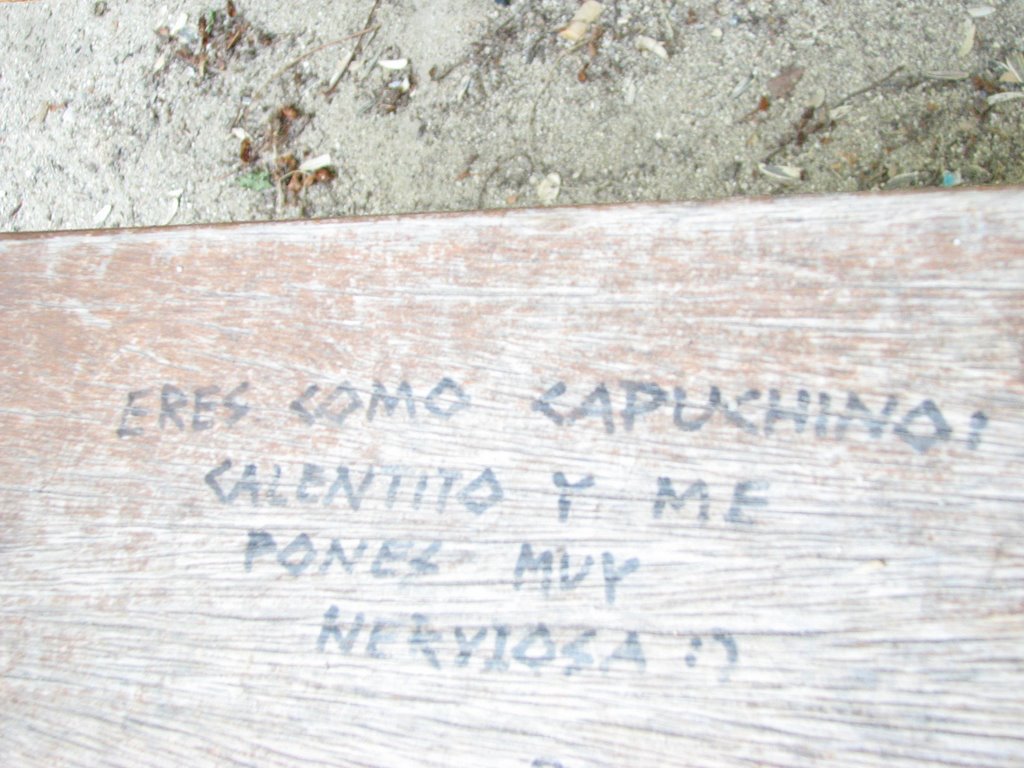 ERES COMO CAPUCHINO:
CALENTITO Y ME
PONES MUY
NERVIOSA :)